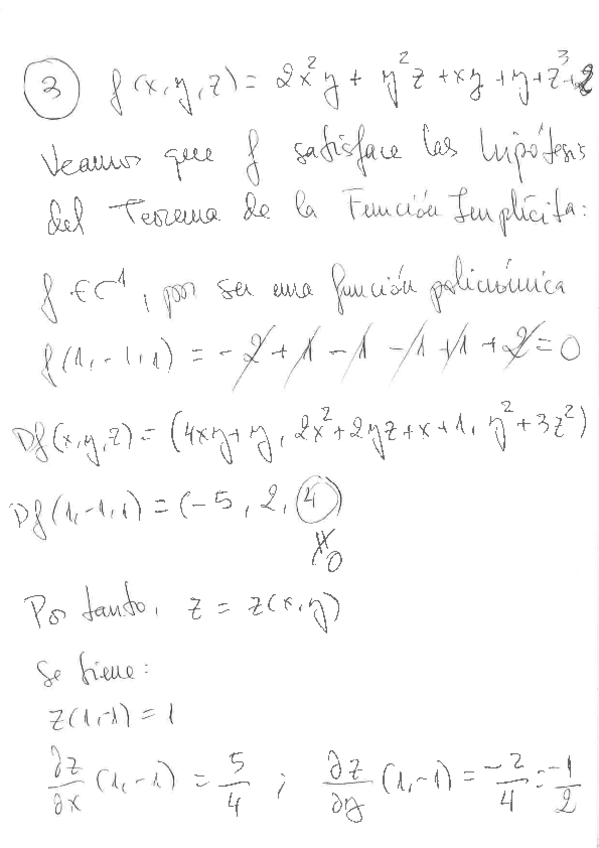 ③ f(x,y,z) = 2x²y + y²z + xy + y + z³ + 2
Veamos que f satisface las hipótesis
del Teorema de la Función Implícita:
f ∈ C¹, por ser una función polinómica
f(1,-1,1) = -2 + 1 - 1 - 1 + 1 + 2 = 0
Df(x,y,z) = (4xy + y, 2x² + 2yz + x + 1, y² + 3z²)
Df(1,-1,1) = (-5, 2, 4)
≠ 0
Por tanto, z = z(x,y)
Se tiene:
z(1,-1) = 1
∂z/∂x (1,-1) = 5/4 ; ∂z/∂y (1,-1) = -2/4 = -1/2